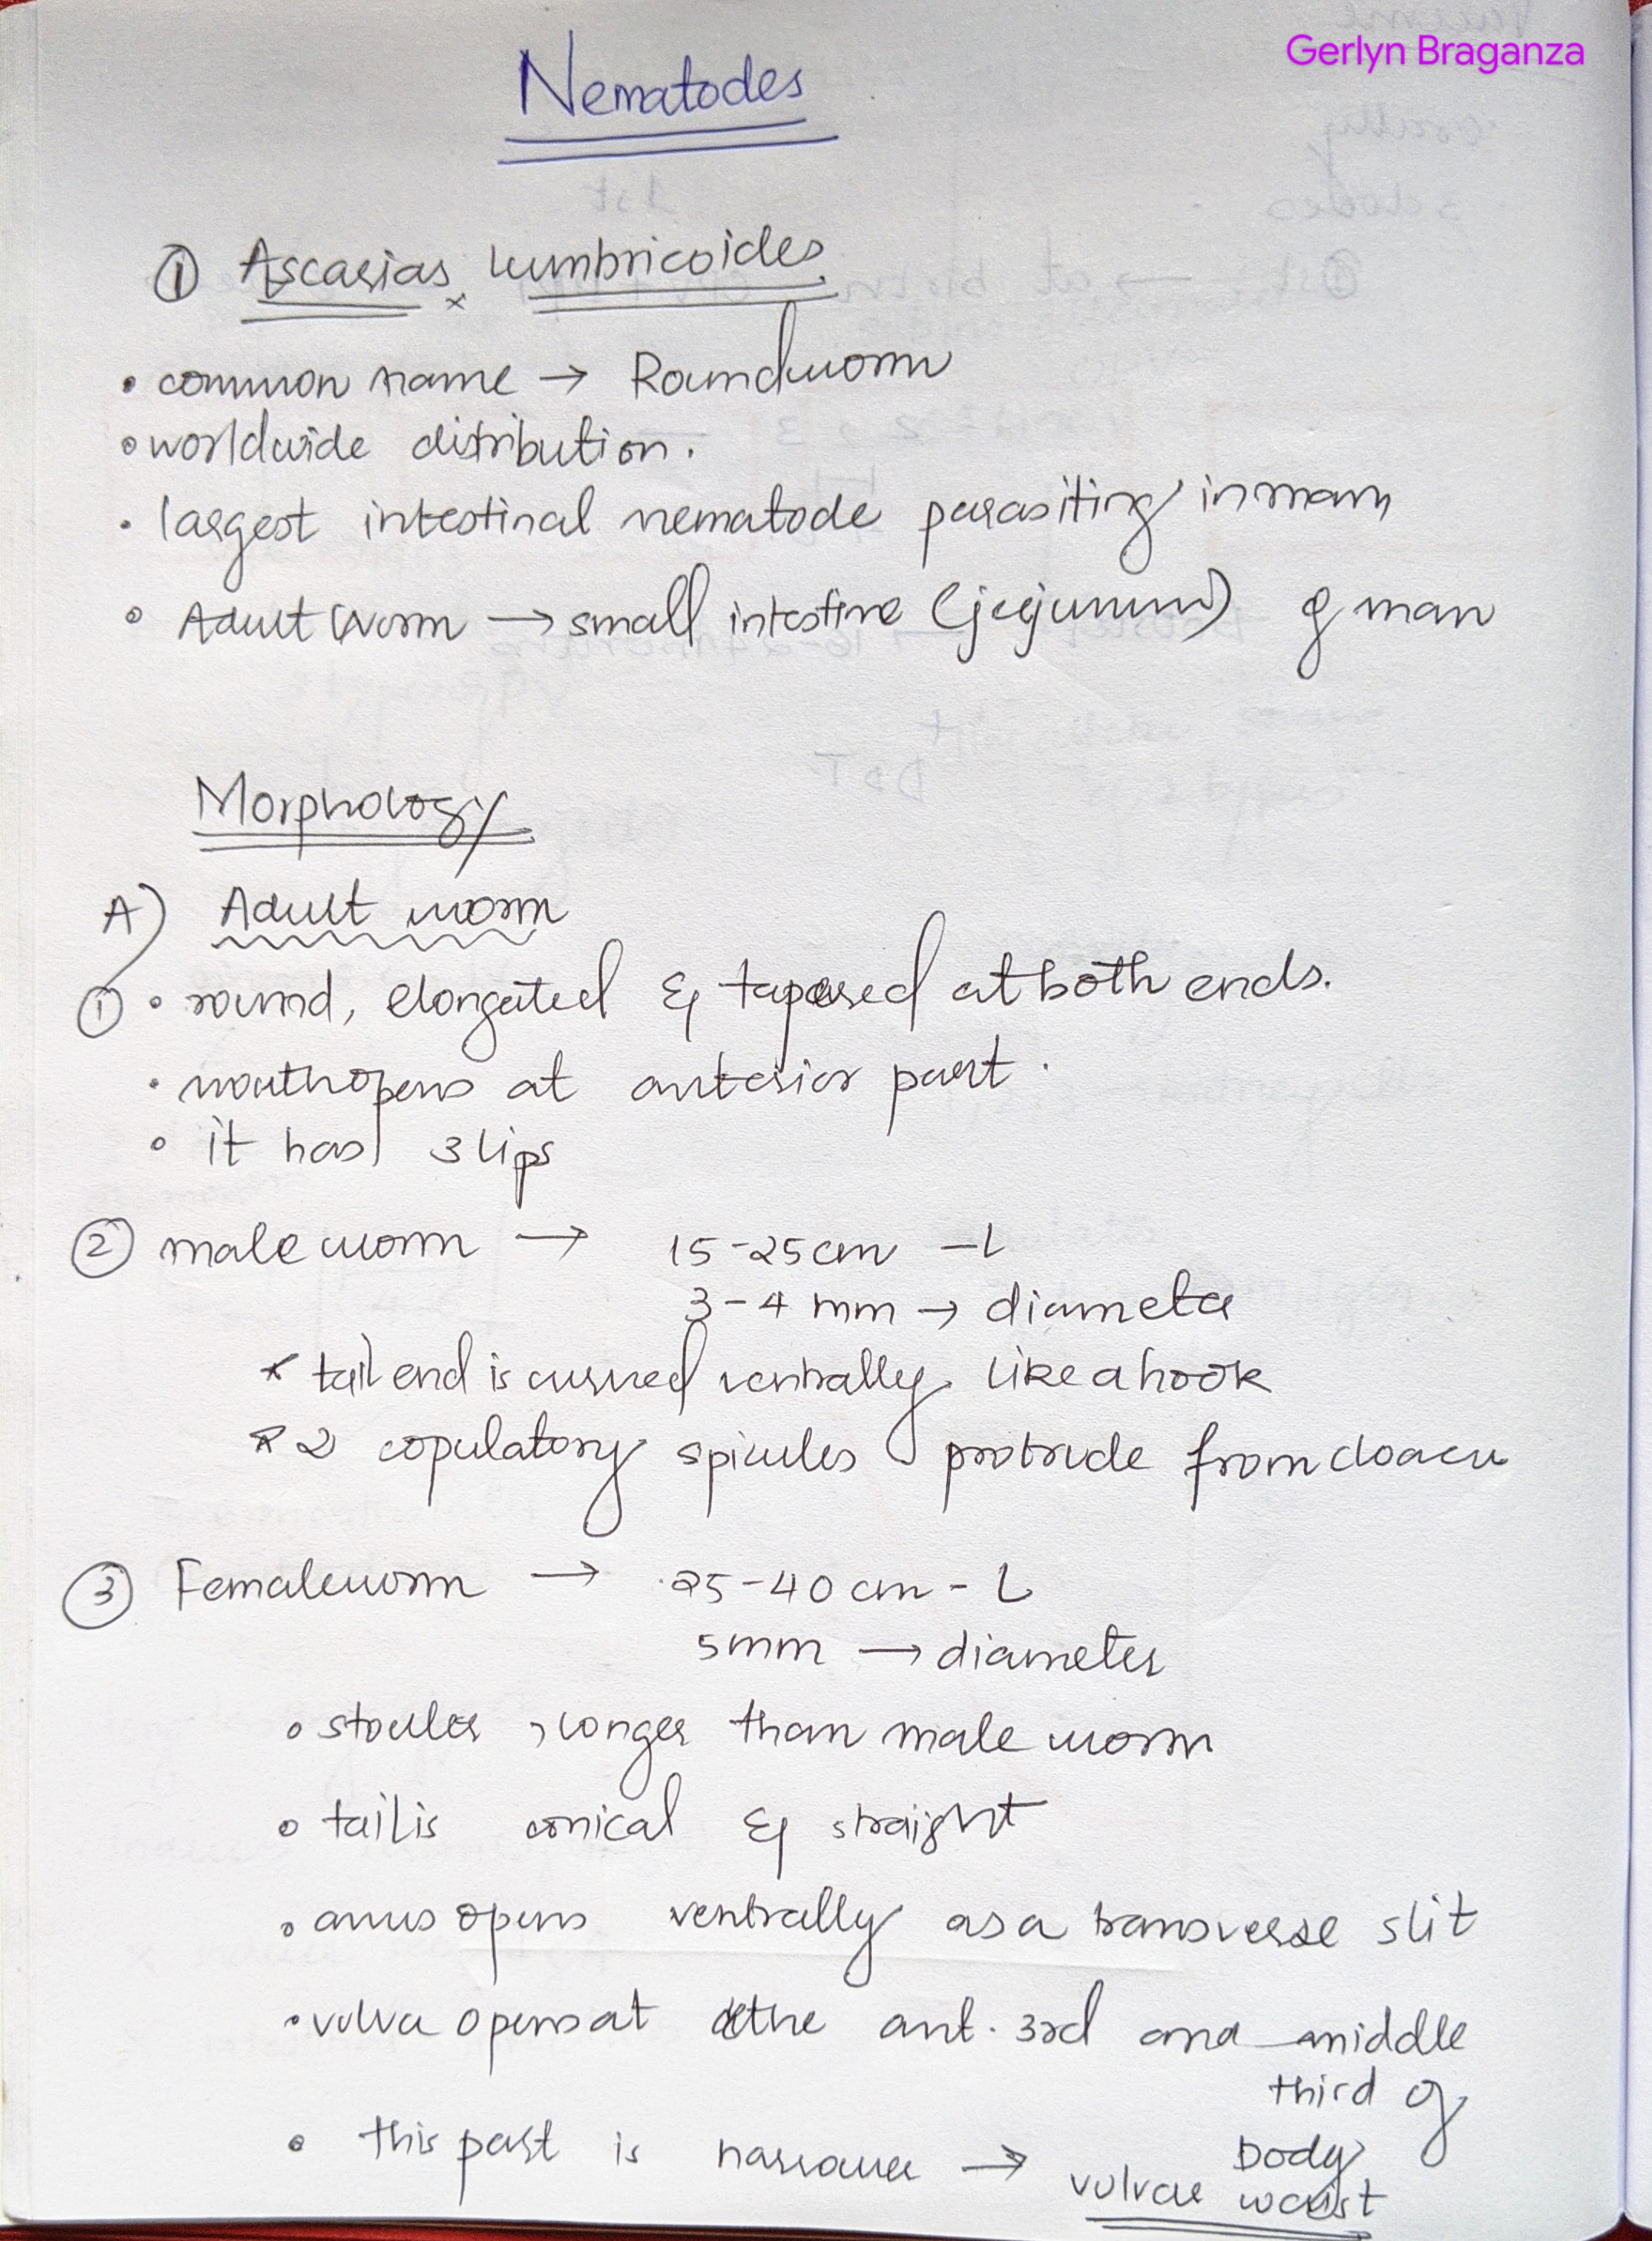 Gerlyn Braganza
Nematodes
① Ascarias lumbricoides
• common name → Roundworm
• worldwide distribution.
• largest intestinal nematode parasiting in man
• Adult worm → small intestine (jejunum) of man
Morphology
A) Adult worm
① • round, elongated & tapered at both ends.
• mouth opens at anterior part.
• it has 3 lips
② male worm → 15-25cm - L
3-4 mm → diameter
* tail end is curved ventrally like a hook
* 2 copulatory spicules protrude from cloaca
③ Female worm → 25-40 cm - L
5mm → diameter
• stouter, longer than male worm
• tail is conical & straight
• anus opens ventrally as a transverse slit
• vulva opens at the ant. 3rd and middle
third of
body
• this part is narrower → vulvae waist